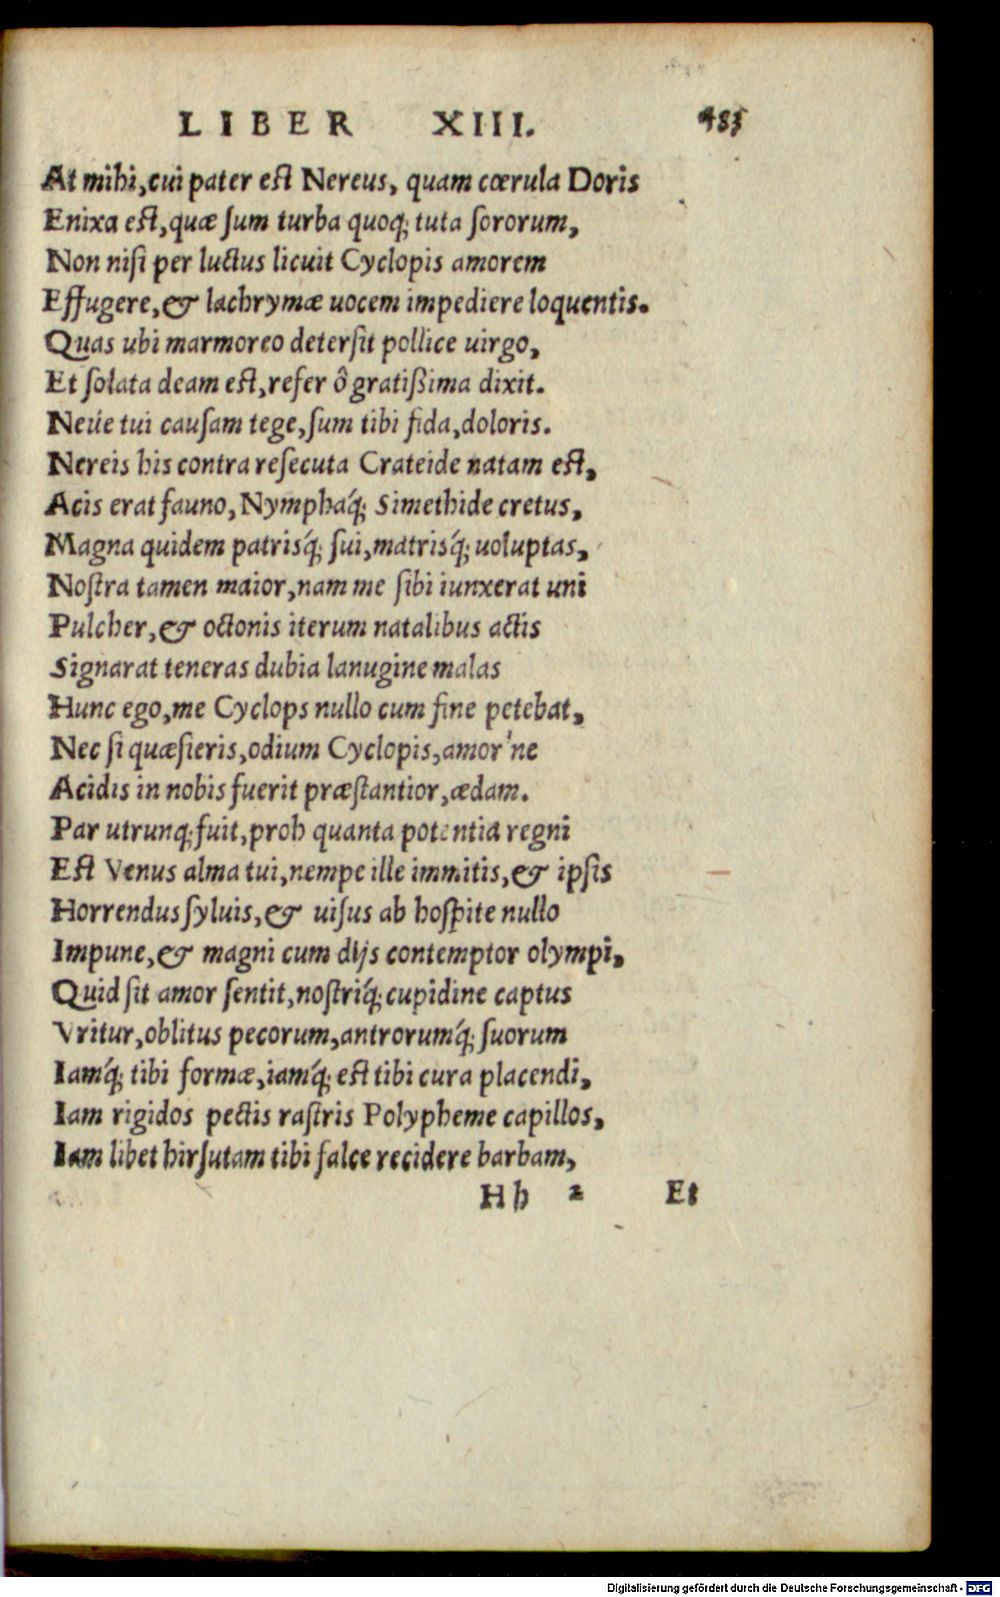 LIBER XIII. 483
At mihi, cui pater est Nereus, quam cœrula Doris
Enixa est, quæ sum turba quoq; tuta sororum,
Non nisi per luctus licuit Cyclopis amorem
Effugere, & lachrymæ uocem impediere loquentis.
Quas ubi marmoreo detersit pollice uirgo,
Et solata deam est, refer ô gratißima dixit.
Neúe tui causam tege, sum tibi fida, doloris.
Nereis his contra resecuta Crateide natam est,
Acis erat fauno, Nymphaq́; Simethide cretus,
Magna quidem patrisq́; sui, matrisq́; uoluptas,
Nostra tamen maior, nam me sibi iunxerat uni
Pulcher, & octonis iterum natalibus actis
Signarat teneras dubia lanugine malas
Hunc ego, me Cyclops nullo cum fine petebat,
Nec si quæsieris, odium Cyclopis, amor'ne
Acidis in nobis fuerit præstantior, ædam.
Par utrunq; fuit, proh quanta potentia regni
Est Venus alma tui, nempe ille immitis, & ipsis
Horrendus syluis, & uisus ab hospite nullo
Impune, & magni cum dijs contemptor olympi,
Quid sit amor sentit, nostriq́; cupidine captus
Vritur, oblitus pecorum, antrorumq́; suorum
Iamq́; tibi formæ, iamq́; est tibi cura placendi,
Iam rigidos pectis rastris Polypheme capillos,
Iam libet hirsutam tibi falce recidere barbam,
Hh 2 Et
Digitalisierung gefördert durch die Deutsche Forschungsgemeinschaft - DFG